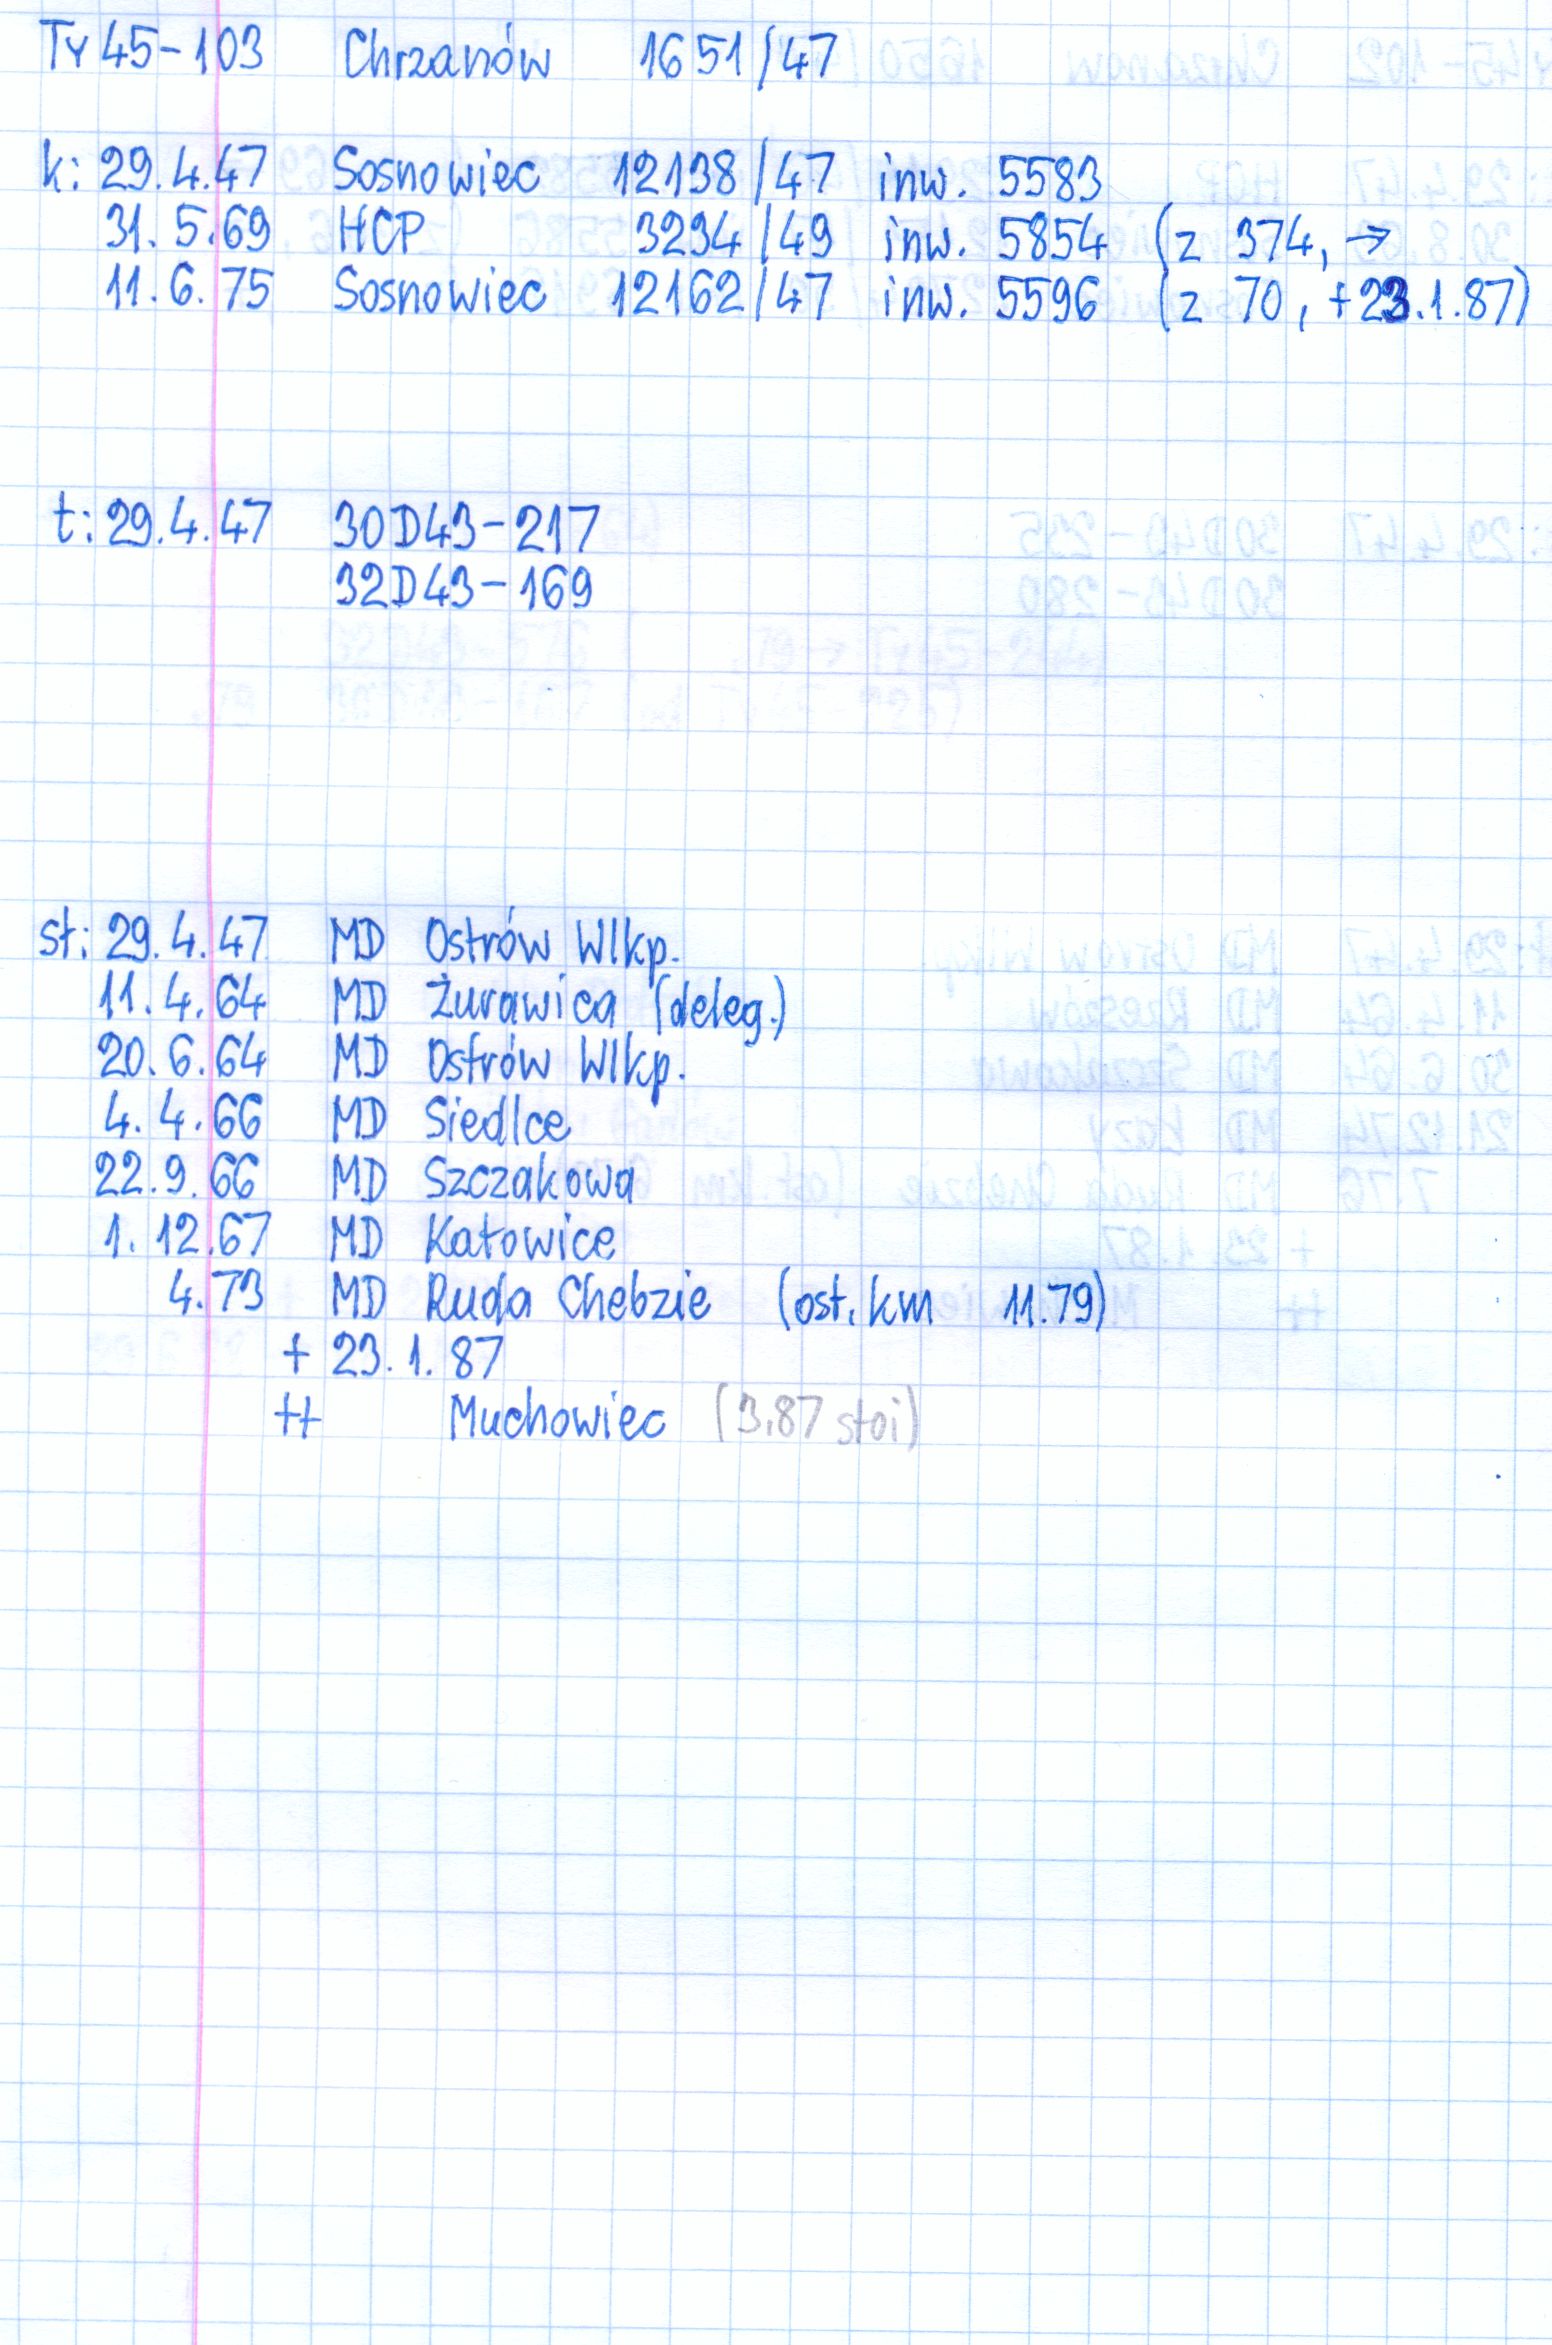 Ty 45-103 Chrzanów 1651/47
k: 29.4.47 Sosnowiec 12138/47 inw. 5583
31.5.69 HCP 3294/49 inw. 5854 (z 374, →
11.6.75 Sosnowiec 12162/47 inw. 5596 (z 70, +23.1.87)
t: 29.4.47 30D43-217
32D43-169
st: 29.4.47 MD Ostrów Wlkp.
11.4.64 MD Żurawica (deleg.)
20.6.64 MD Ostrów Wlkp.
4.4.66 MD Siedlce
22.9.66 MD Szczakowa
1.12.67 MD Katowice
4.73 MD Ruda Chebzie (ost. km 11.79)
+ 23.1.87
++ Muchowiec (3.87 stoi)